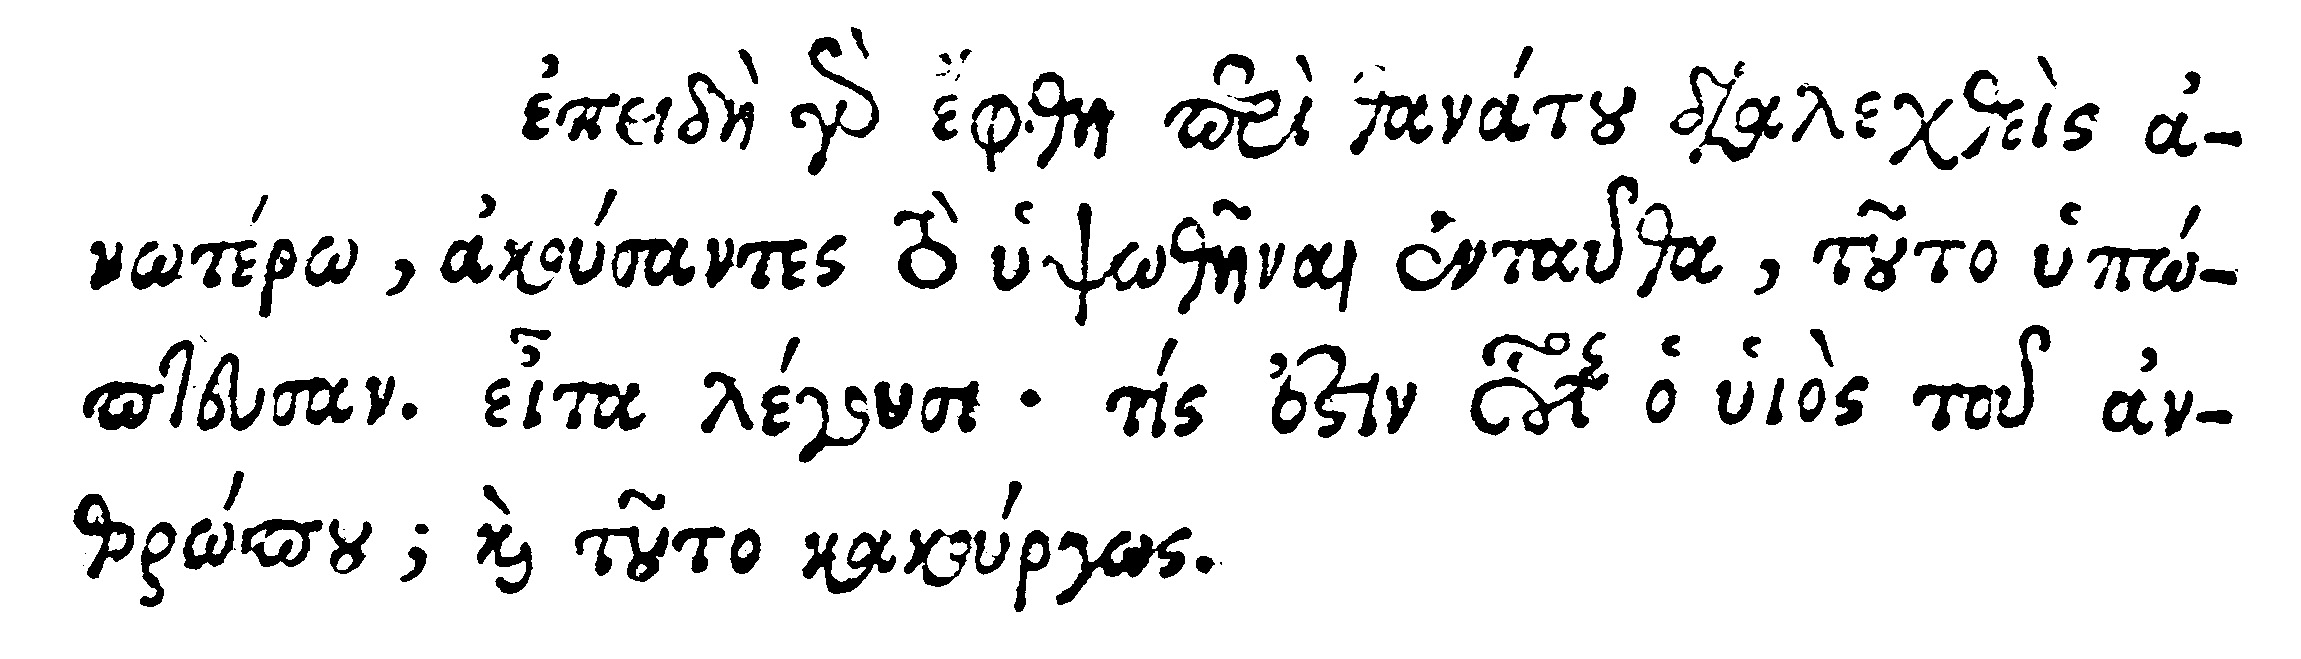 ἐπειδὴ γὰρ ἔφθη περὶ θανάτου διαλεχθεὶς ἀ-
νωτέρω, ἀκούσαντες τὸ ὑψωθῆναι ἐνταῦθα, τοῦτο ὑπώ-
πτευσαν. εἶτα λέγουσι· τίς ἐστιν οὗτος ὁ υἱὸς τοῦ ἀν-
θρώπου; καὶ τοῦτο κακούργως.